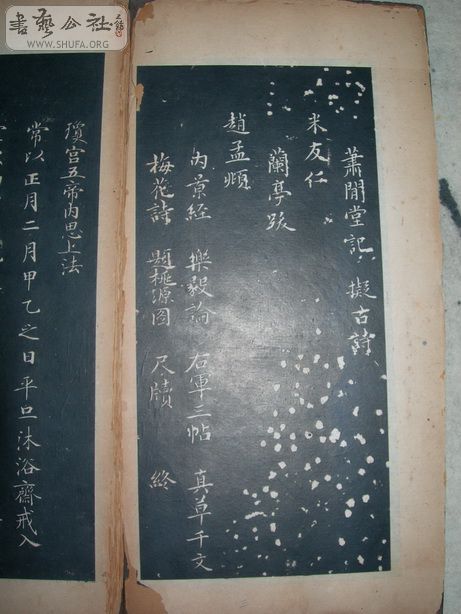 蕭閒堂記 擬古詩
米友仁
蘭亭跋
趙孟頫
內景經 樂毅論 右軍三帖 真草千文
梅花詩 題桃源圖 尺牘 終
瓊宮五帝內思上法
常以正月二月甲乙之日平旦沐浴齋戒入
書藝公社
WWW.SHUFA.ORG